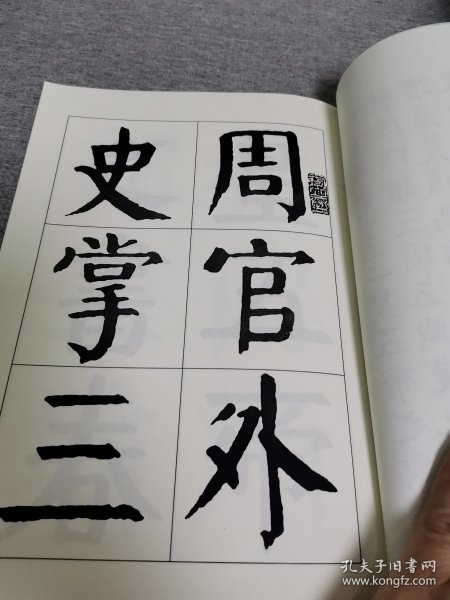 周官外
史掌三
孔夫子旧书网
www.kongfz.com